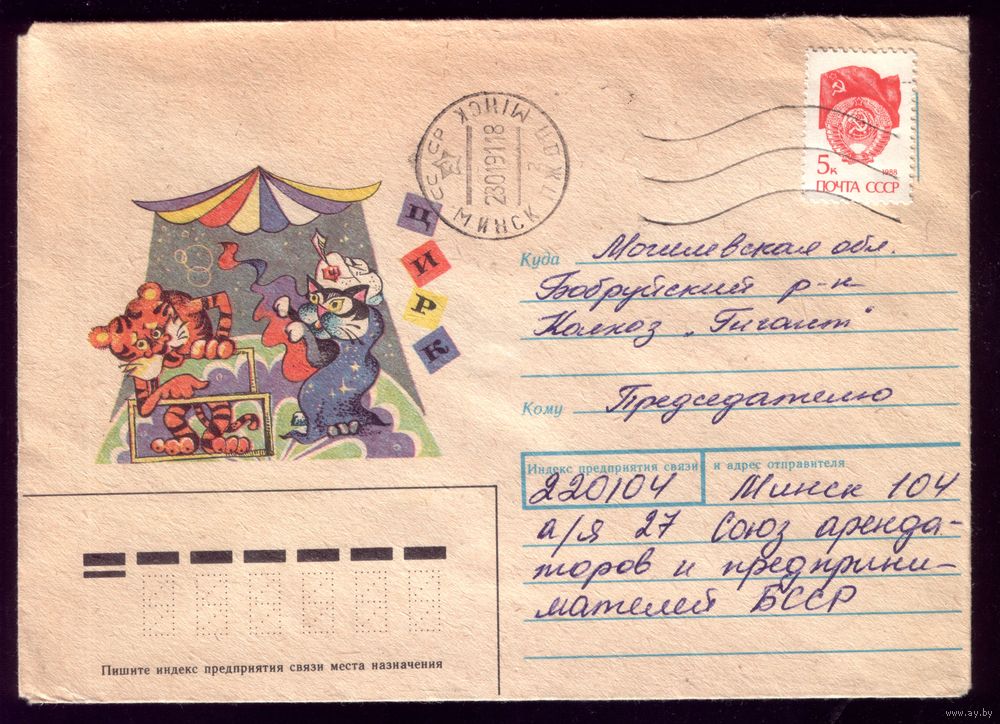 5к 1988
ПОЧТА СССР
СССР МІНСК ПОЖТ
2301918
МИНСК
ЦИРК
Куда Могилевская обл.
Бобруйский р-н
Колхоз „Гигант"
Кому Председателю
Индекс предприятия связи и адрес отправителя
220104 Минск 104
а/я 27 Союз аренда-
торов и предприни-
мателей БССР
Пишите индекс предприятия связи места назначения
www.ay.by